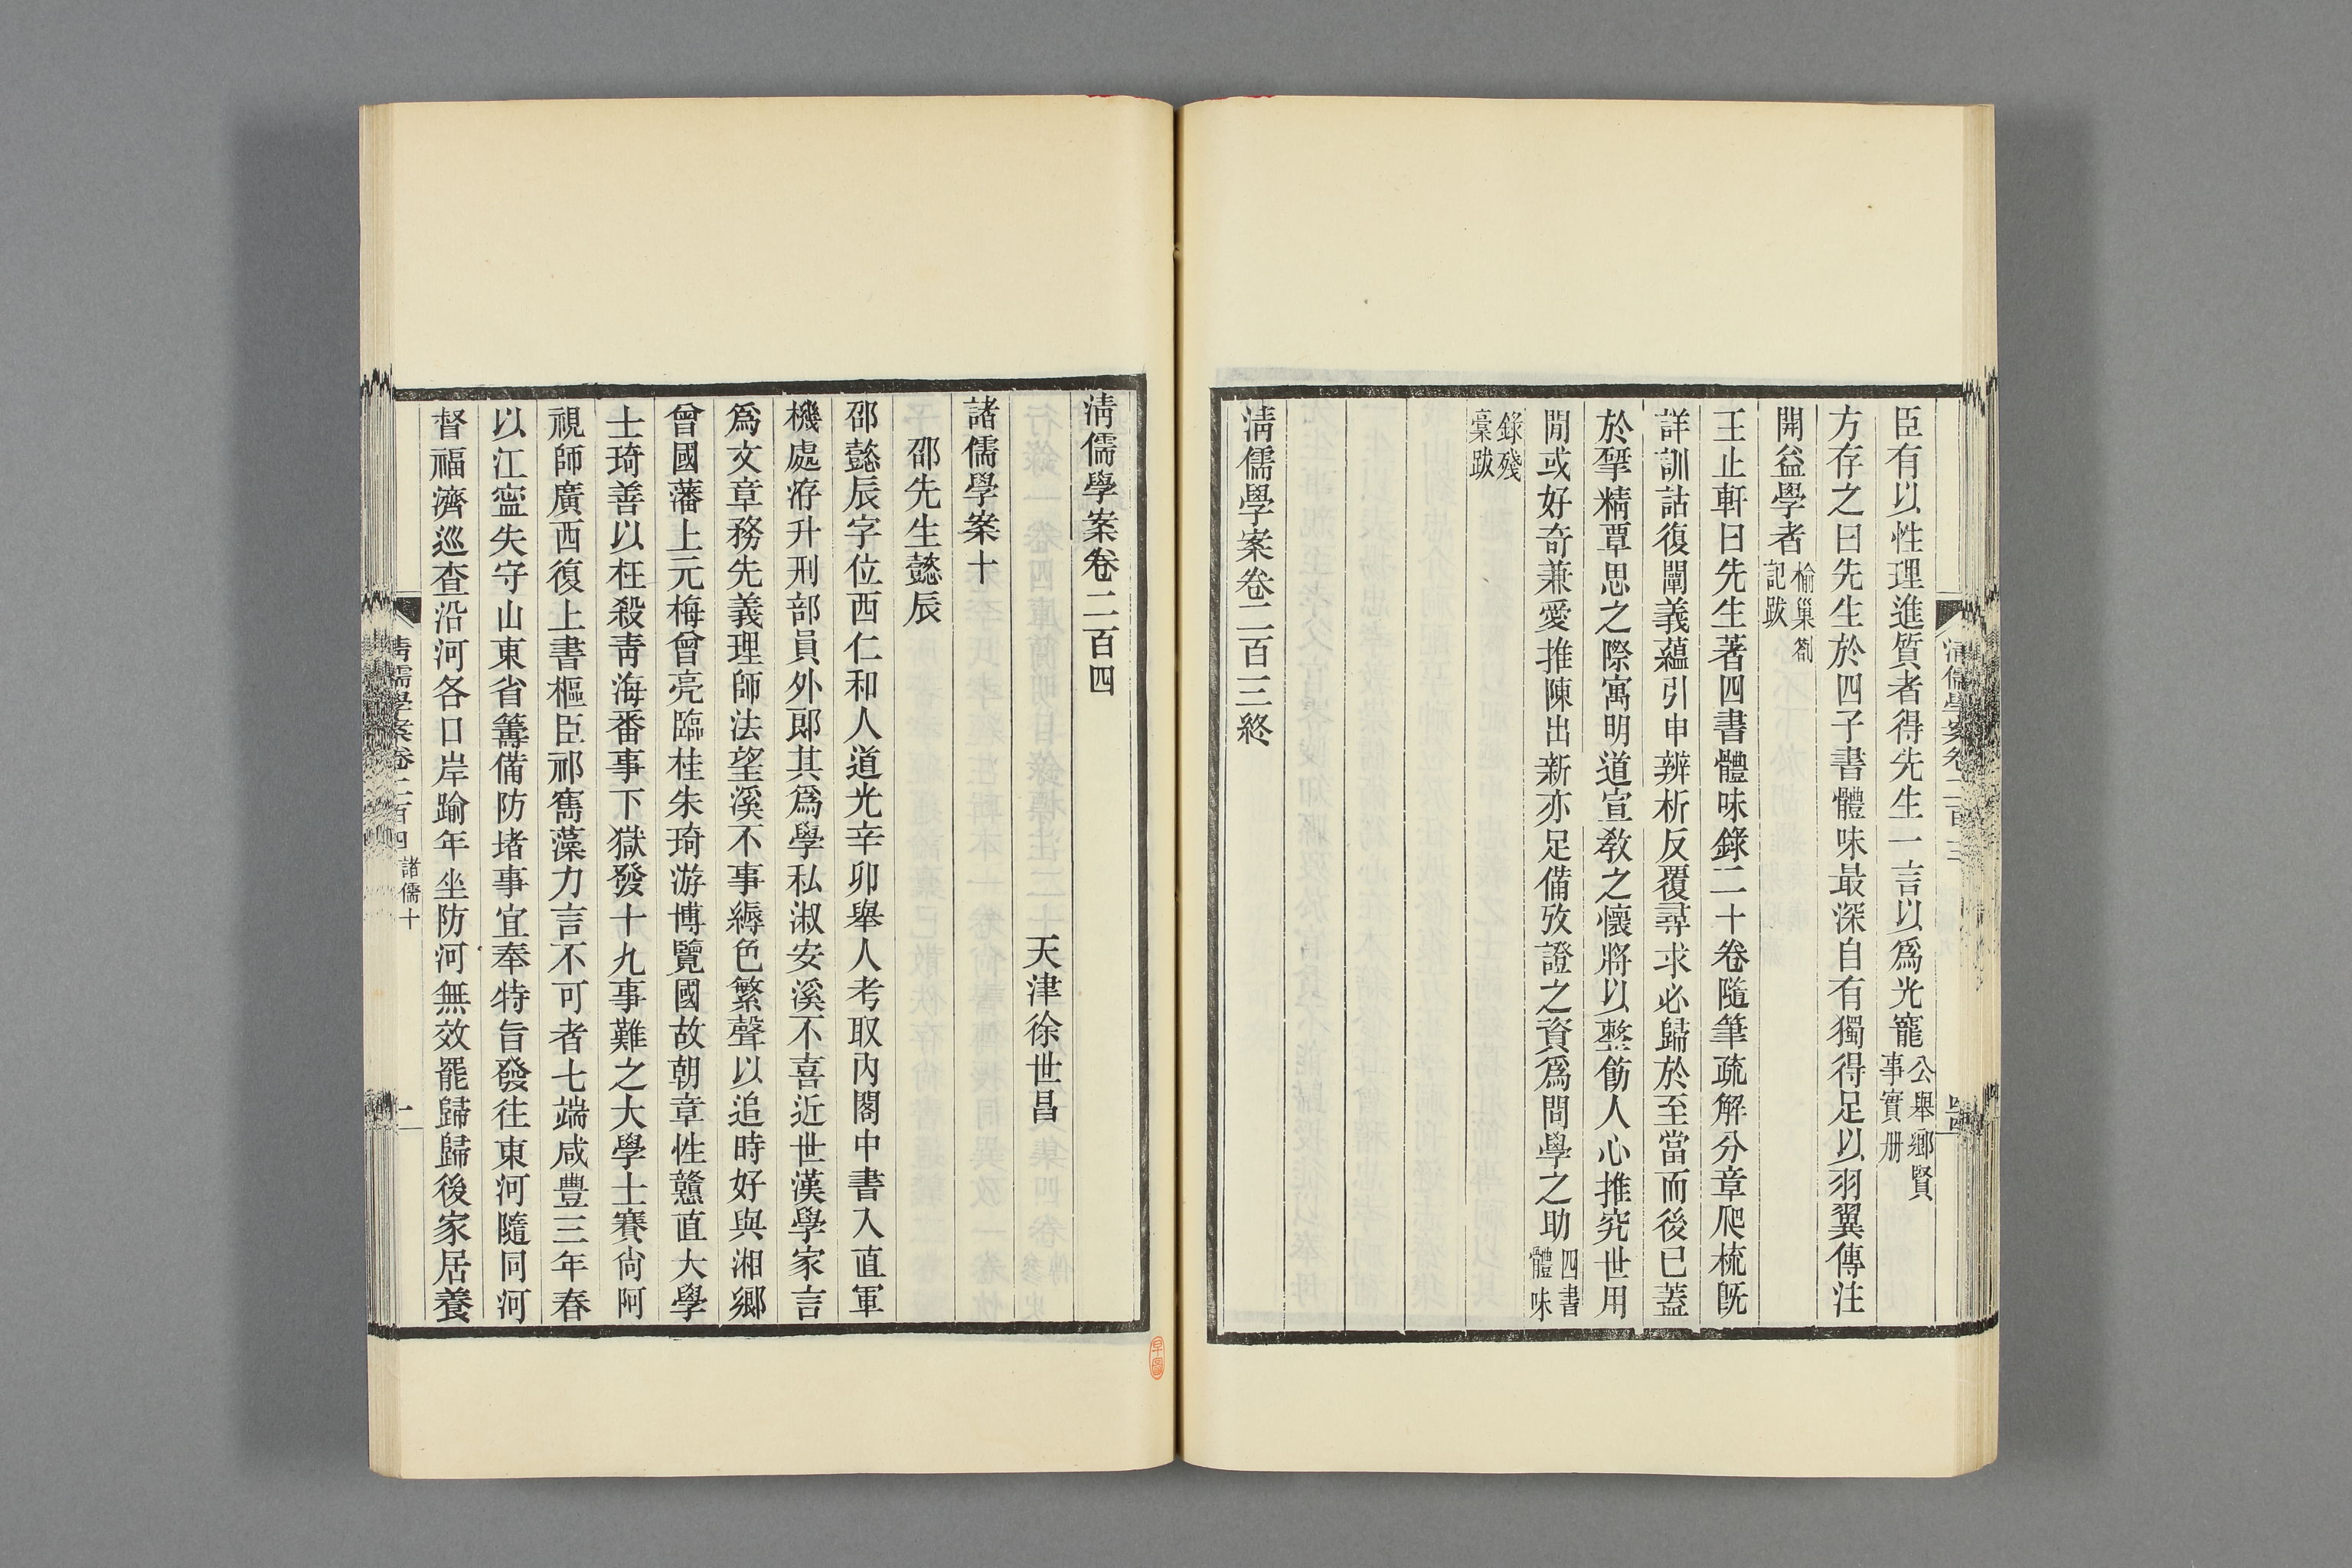 臣有以性理進質者得先生一言以爲光寵公舉鄉賢事實册
方存之曰先生於四子書體味最深自有獨得足以羽翼傳注
開益學者榆巢劄記跋
王止軒曰先生著四書體味錄二十卷隨筆疏解分章爬梳旣
詳訓詁復闡義蘊引申辨析反覆尋求必歸於至當而後已蓋
於揅精覃思之際寓明道宣敎之懷將以整飭人心推究世用
閒或好奇兼愛推陳出新亦足備攷證之資爲問學之助四書體味
錄殘稾跋
淸儒學案卷二百三終
淸儒學案卷二百三
淸儒學案卷二百四
天津徐世昌
諸儒學案十
邵先生懿辰
邵懿辰字位西仁和人道光辛卯舉人考取內閣中書入直軍
機處洊升刑部員外郞其爲學私淑安溪不喜近世漢學家言
爲文章務先義理師法望溪不事縟色繁聲以追時好與湘鄉
曾國藩上元梅曾亮臨桂朱琦游博覽國故朝章性戇直大學
士琦善以枉殺靑海番事下獄發十九事難之大學士賽尙阿
視師廣西復上書樞臣祁寯藻力言不可者七端咸豐三年春
以江寍失守山東省籌備防堵事宜奉特旨發往東河隨同河
督福濟巡查沿河各口岸踰年坐防河無效罷歸歸後家居養
淸儒學案卷二百四 諸儒十 一